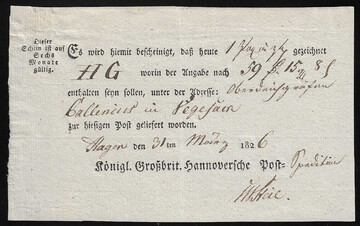 Dieser
Schein ist auf
Sechs
Monate
gültig.
Es wird hiemit bescheinigt, daß heute 1 gezeichnet
HG worin der Angabe nach 59 15
enthalten seyn sollen, unter der Adresse:
in Vegesack
zur hiesigen Post geliefert worden.
Hagen den 31ten März 1826
Königl. Großbrit. Hannoversche Post-Spedition